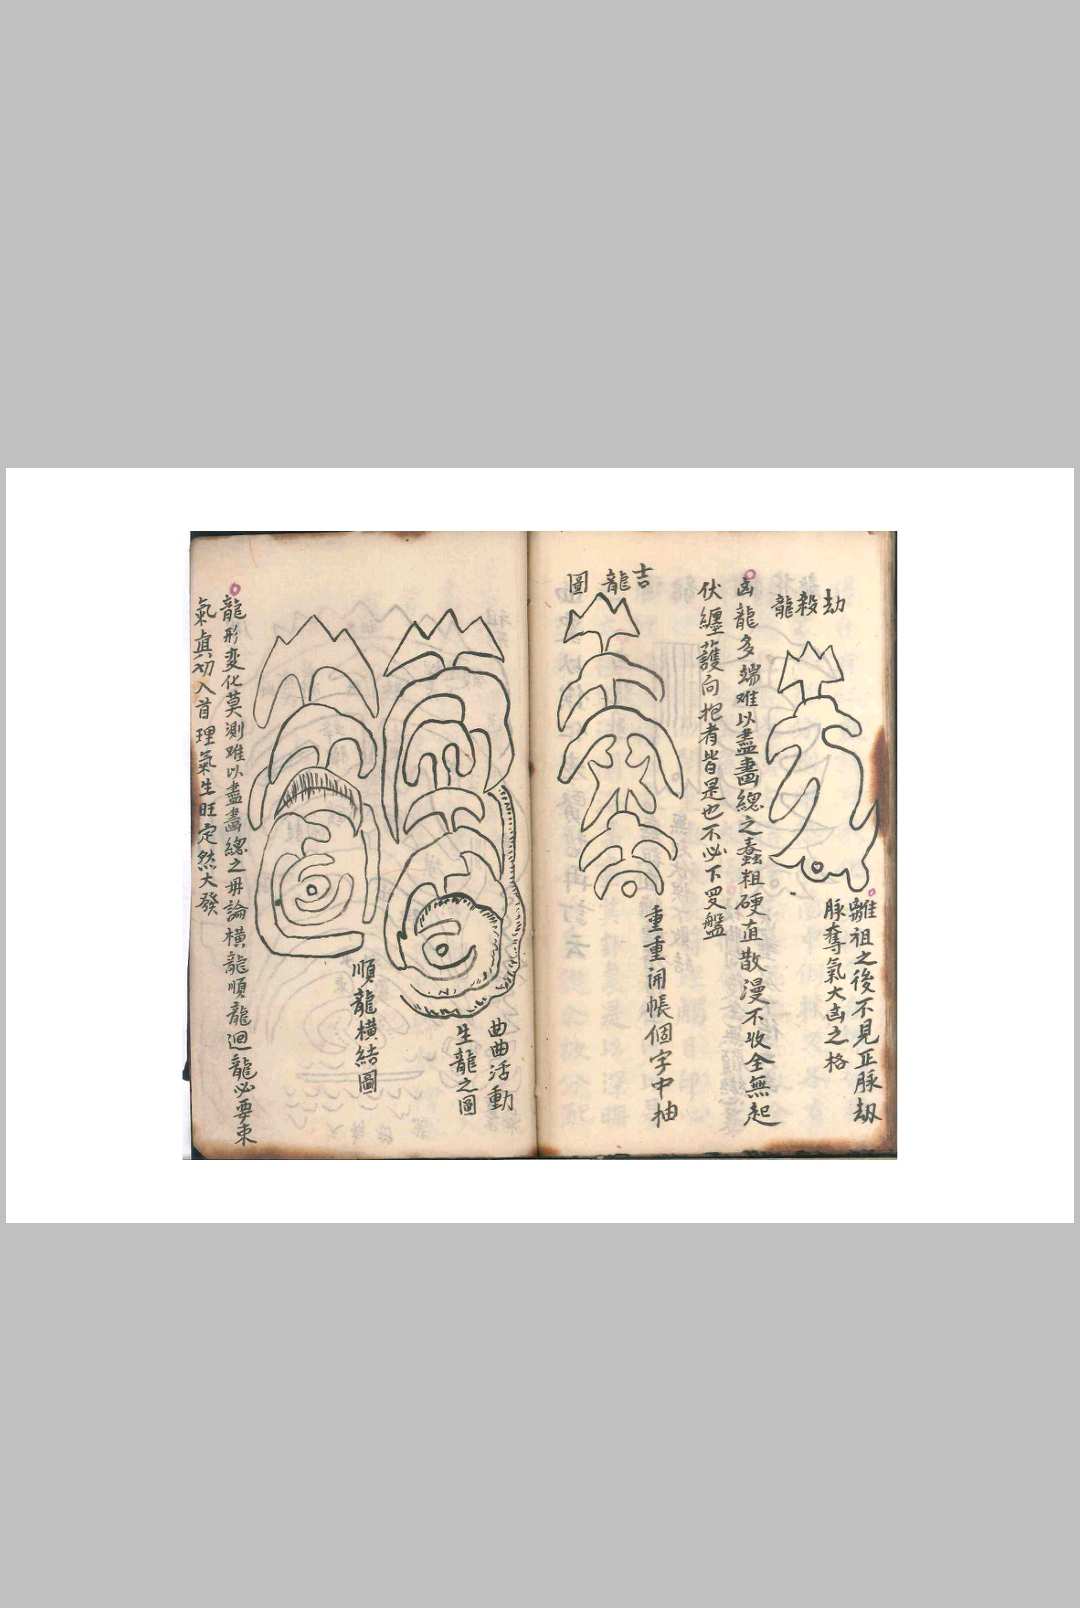 劫殺龍
離祖之後不見正脉劫
脉奪氣大凶之格
凶龍多端难以盡畫緫之蠢粗硬直散漫不收全無起
伏纏護向抱者皆是也不必下罗盤
吉龍圖
重重開帳個字中抽
曲曲活動
生龍之圖
順龍橫結圖
龍形変化莫測难以盡畵緫之毋論橫龍順龍廻龍必要束
氣真切入首理氣生旺定然大發